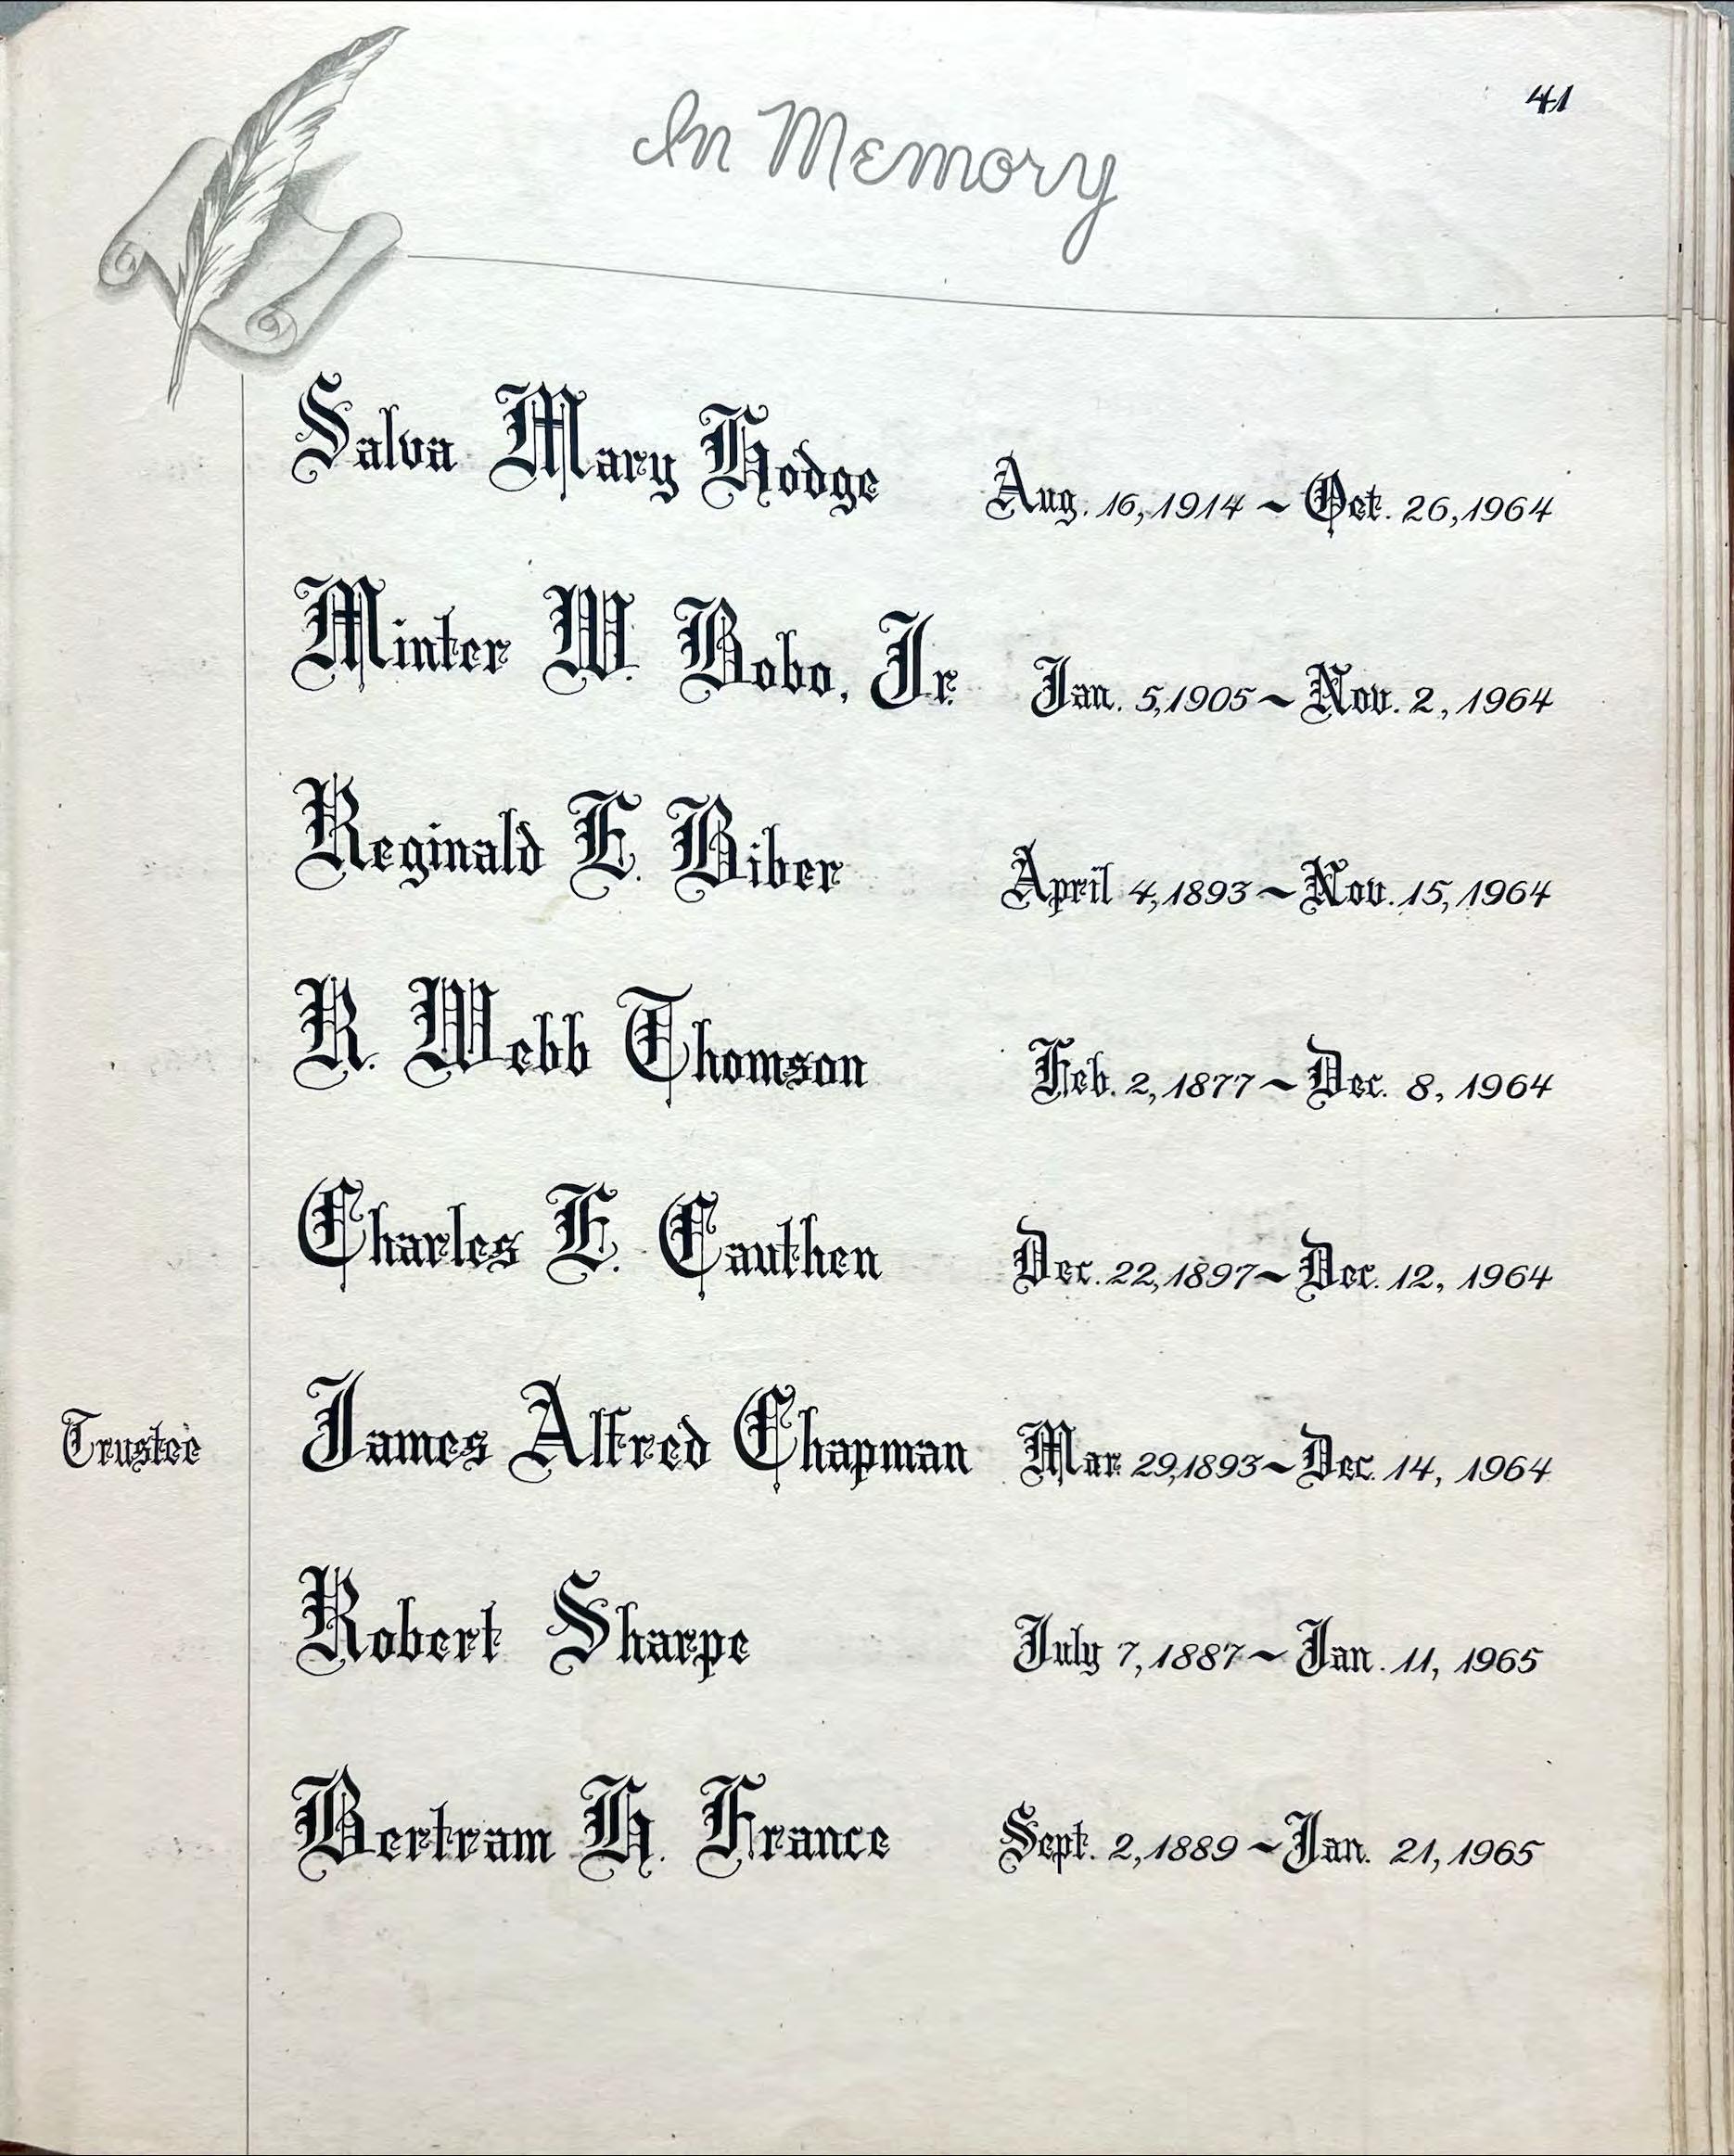 41
In Memory
Salva Mary Hodge Aug. 16, 1914 ~ Oct. 26, 1964
Minter W. Bobo, Jr. Jan. 5, 1905 ~ Nov. 2, 1964
Reginald E. Biber April 4, 1893 ~ Nov. 15, 1964
R. Webb Thomson Feb. 2, 1877 ~ Dec. 8, 1964
Charles E. Cauthen Dec. 22, 1897 ~ Dec. 12, 1964
Trustee James Alfred Chapman Mar. 29, 1893 ~ Dec. 14, 1964
Robert Sharpe July 7, 1887 ~ Jan. 11, 1965
Bertram H. France Sept. 2, 1889 ~ Jan. 21, 1965